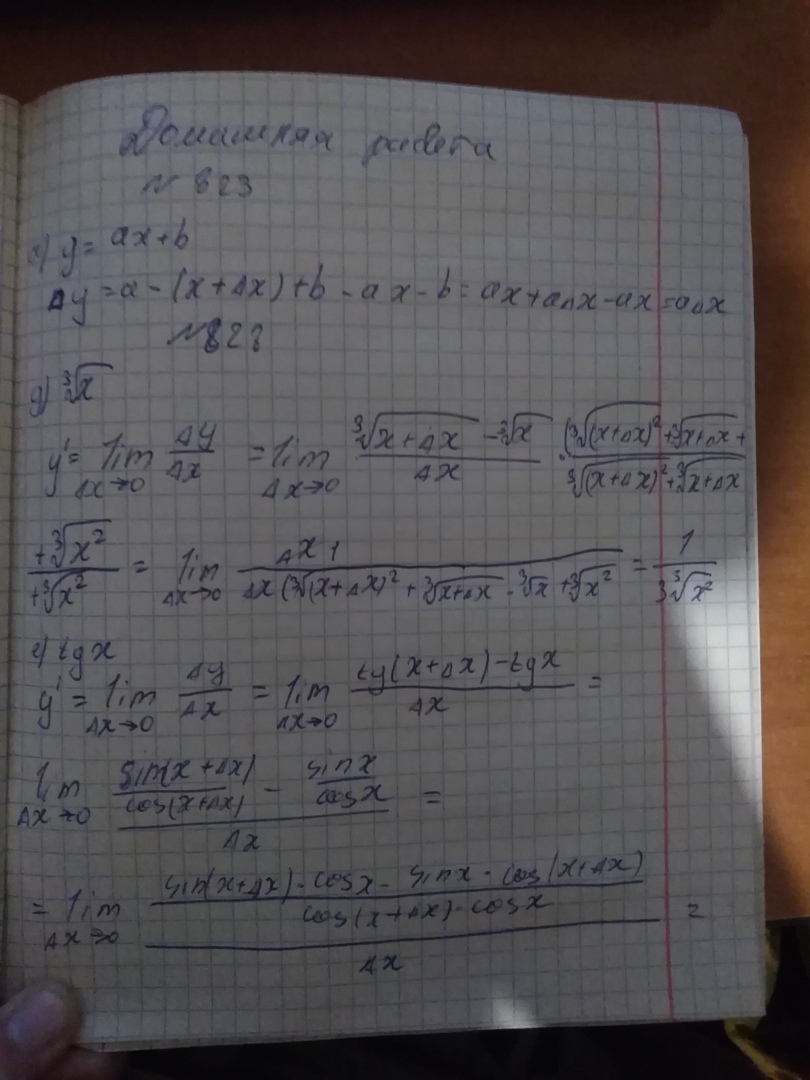 Домашняя работа
№ 823
а) y = ax+b
Δy = a - (x + Δx) + b - ax - b = ax + aΔx - ax = aΔx
№ 822
д) ∛x
y' = lim Δx→0 Δy/Δx = lim Δx→0 (∛(x+Δx) - ∛x)/Δx · (∛(x+Δx)² + ∛(x+Δx) +)/(∛(x+Δx)² + ∛(x+Δx)
(+∛x²)/(+∛x²) = lim Δx→0 Δx 1/(Δx (∛(x+Δx)² + ∛(x+Δx) · ∛x + ∛x²) = 1/(3∛x²)
е) tg x
y' = lim Δx→0 Δy/Δx = lim Δx→0 (tg(x+Δx) - tg x)/Δx =
lim Δx→0 (sin(x+Δx)/cos(x+Δx) - sin x/cos x)/Δx =
= lim Δx→0 ((sin(x+Δx) · cos x - sin x · cos(x+Δx))/(cos(x+Δx) · cos x))/Δx =